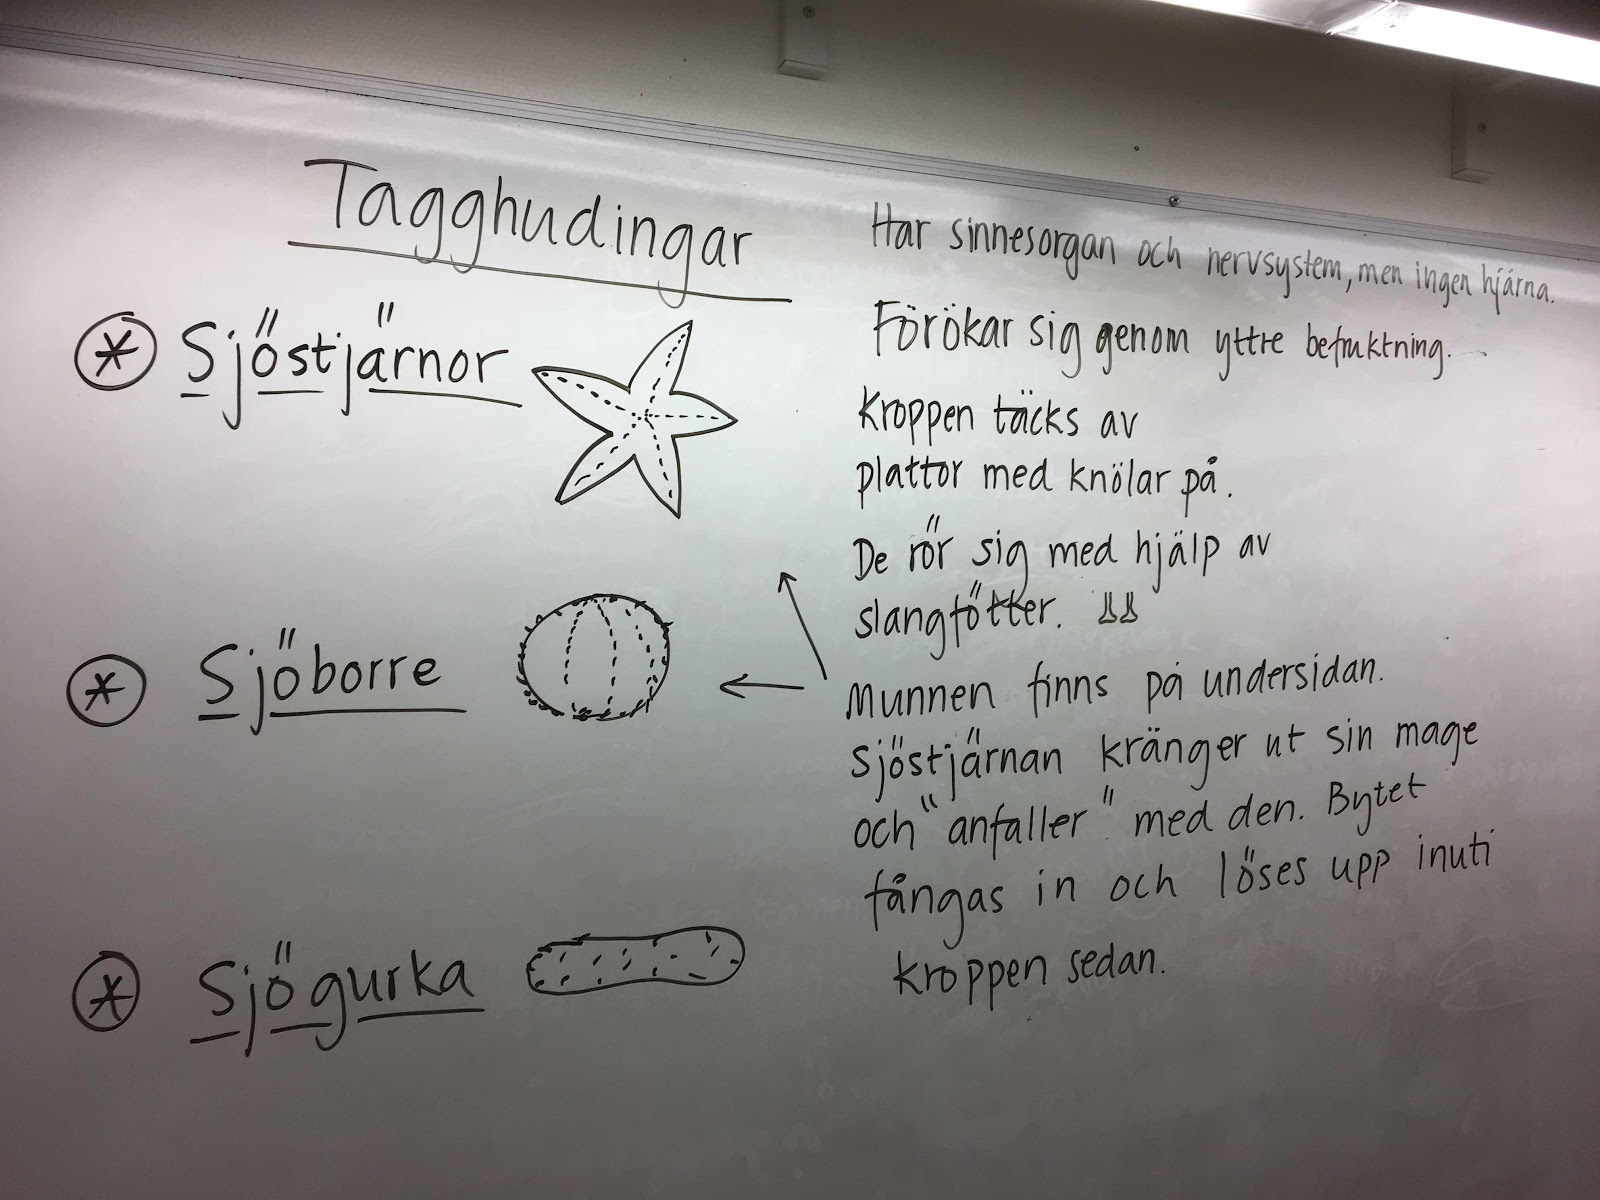 Tagghudingar
Sjöstjärnor
Sjöborre
Sjögurka
Har sinnesorgan och nervsystem, men ingen hjärna.
Förökar sig genom yttre befruktning.
Kroppen täcks av
plattor med knölar på.
De rör sig med hjälp av
slangfötter.
Munnen finns på undersidan.
Sjöstjärnan kränger ut sin mage
och "anfaller" med den. Bytet
fångas in och löses upp inuti
kroppen sedan.